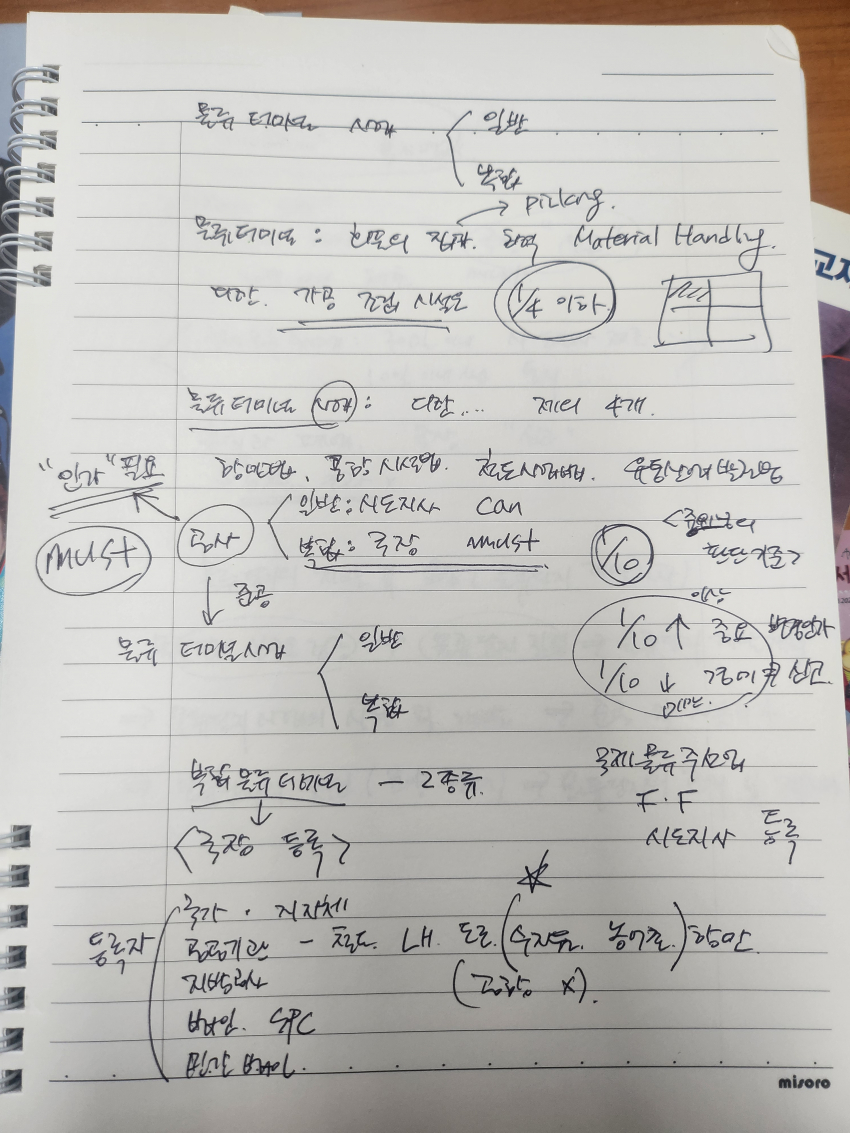 물류 터미널 사업 일반
복합
picking.
물류터미널 : 화물의 집화. 하역 Material Handling.
다만. 가공 조립 시설은 1/4 이하
물류터미널 사업 : 다만.... 제외 4개.
"인가" 필요 항만법. 공항시설법. 철도사업법. 유통산업발전법
must 공사 일반 : 시도지사 can
복합 : 국장 must
1/10 <중요한 판단기준>
준공
물류 터미널사업 일반
복합
이상
1/10 ↑ 중요 변경인가
1/10 ↓ 신고.
미만.
복합물류터미널 — 2종류.
<국장 등록>
국제물류주선업
F·F
시도지사 등록
등록자
국가 · 지자체
공공기관 - 철도. LH. 도로. (수자원. 농어촌.) 항만
지방공사 (공항 X).
법인. SPC
민간 법인.
교재
서
misoro